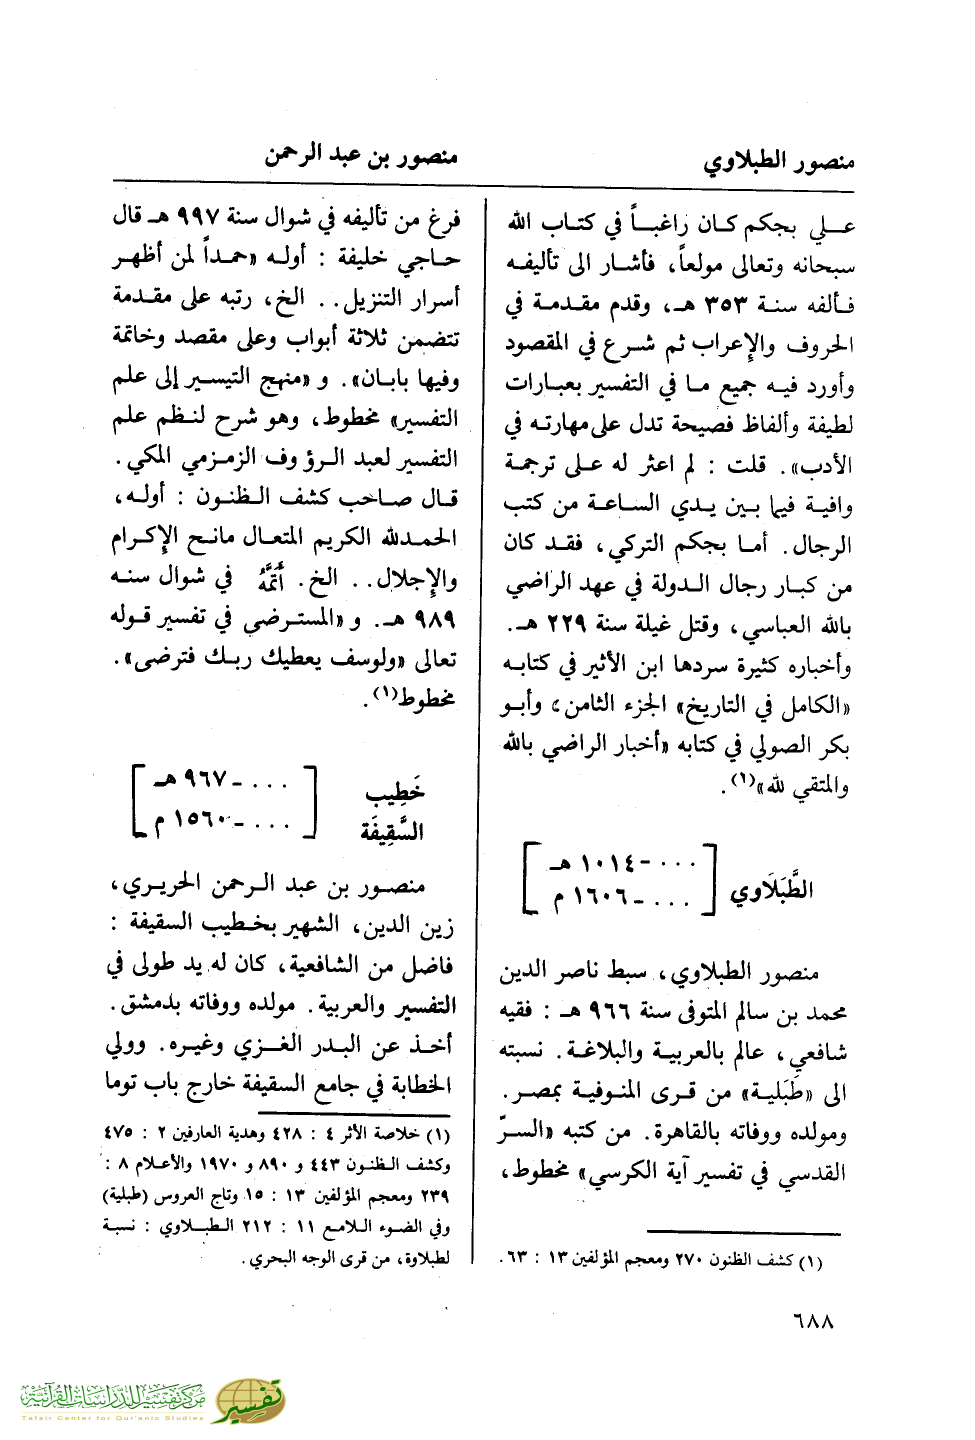 منصور الطبلاوي
منصور بن عبد الرحمن
علي بجكم كان راغباً في كتاب الله
سبحانه وتعالى مولعاً، فأشار الى تأليفه
فألفه سنة ٣٥٣ هـ، وقدم مقدمة في
الحروف والإعراب ثم شرع في المقصود
وأورد فيه جميع ما في التفسير بعبارات
لطيفة وألفاظ فصيحة تدل على مهارته في
الأدب». قلت : لم اعثر له على ترجمة
وافية فيما بين يدي الساعة من كتب
الرجال. أما بجكم التركي، فقد كان
من كبار رجال الدولة في عهد الراضي
بالله العباسي، وقتل غيلة سنة ٢٢٩ هـ.
وأخباره كثيرة سردها ابن الأثير في كتابه
«الكامل في التاريخ» الجزء الثامن؛ وأبو
بكر الصولي في كتابه «أخبار الراضي بالله
والمتقي لله»(١).
الطَّبَلَاوي
[ ... - ١٠١٤ هـ
... - ١٦٠٦ م ]
منصور الطبلاوي، سبط ناصر الدين
محمد بن سالم المتوفى سنة ٩٦٦ هـ : فقيه
شافعي، عالم بالعربية والبلاغة. نسبته
الى «طَبَلية» من قرى المنوفية بمصر.
ومولده ووفاته بالقاهرة. من كتبه «السرّ
القدسي في تفسير آية الكرسي» مخطوط،
(١) كشف الظنون ٢٧٠ ومعجم المؤلفين ١٣ : ٦٣.
فرغ من تأليفه في شوال سنة ٩٩٧ هـ قال
حاجي خليفة : أوله «حمداً لمن أظهر
أسرار التنزيل.. الخ، رتبه على مقدمة
تتضمن ثلاثة أبواب وعلى مقصد وخاتمة
وفيها بابان». و «منهج التيسير إلى علم
التفسير» مخطوط، وهو شرح لنظم علم
التفسير لعبد الرؤوف الزمزمي المكي.
قال صاحب كشف الظنون : أوله،
الحمدلله الكريم المتعال مانح الإكرام
والإجلال.. الخ. أَتمَّهُ في شوال سنه
٩٨٩ هـ. و «المسترضي في تفسير قوله
تعالى «ولوسف يعطيك ربك فترضى».
مخطوط(١).
خَطِيب
السَّقِيفَة
[ ... - ٩٦٧ هـ
... - ١٥٦٠ م ]
منصور بن عبد الرحمن الحريري،
زين الدين، الشهير بخطيب السقيفة :
فاضل من الشافعية، كان له يد طولى في
التفسير والعربية. مولده ووفاته بدمشق.
أخذ عن البدر الغزي وغيره. وولي
الخطابة في جامع السقيفة خارج باب توما
(١) خلاصة الأثر ٤ : ٤٢٨ وهدية العارفين ٢ : ٤٧٥
وكشف الظنون ٤٤٣ و ٨٩٠ و ١٩٧٠ والأعلام ٨ :
٢٣٩ ومعجم المؤلفين ١٣ : ١٥ وتاج العروس (طبلية)
وفي الضوء اللامع ١١ : ٢١٢ الطبلاوي : نسبة
لطبلاوة، من قرى الوجه البحري.
٦٨٨
مركز تفسير للدراسات القرآنية
Tafsir Center for Qur'anic Studies
تفسير